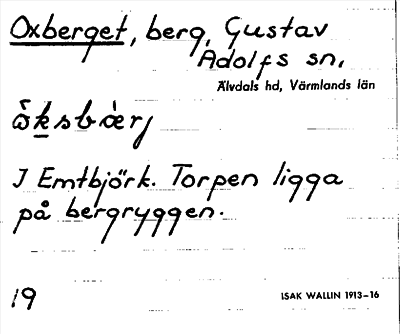 Oxberget, berg, Gustav
Adolfs sn,
Älvdals hd, Värmlands län
ŏ̀ksbæ̀rj
I Emtbjörk. Torpen ligga
på bergryggen.
19
ISAK WALLIN 1913–16